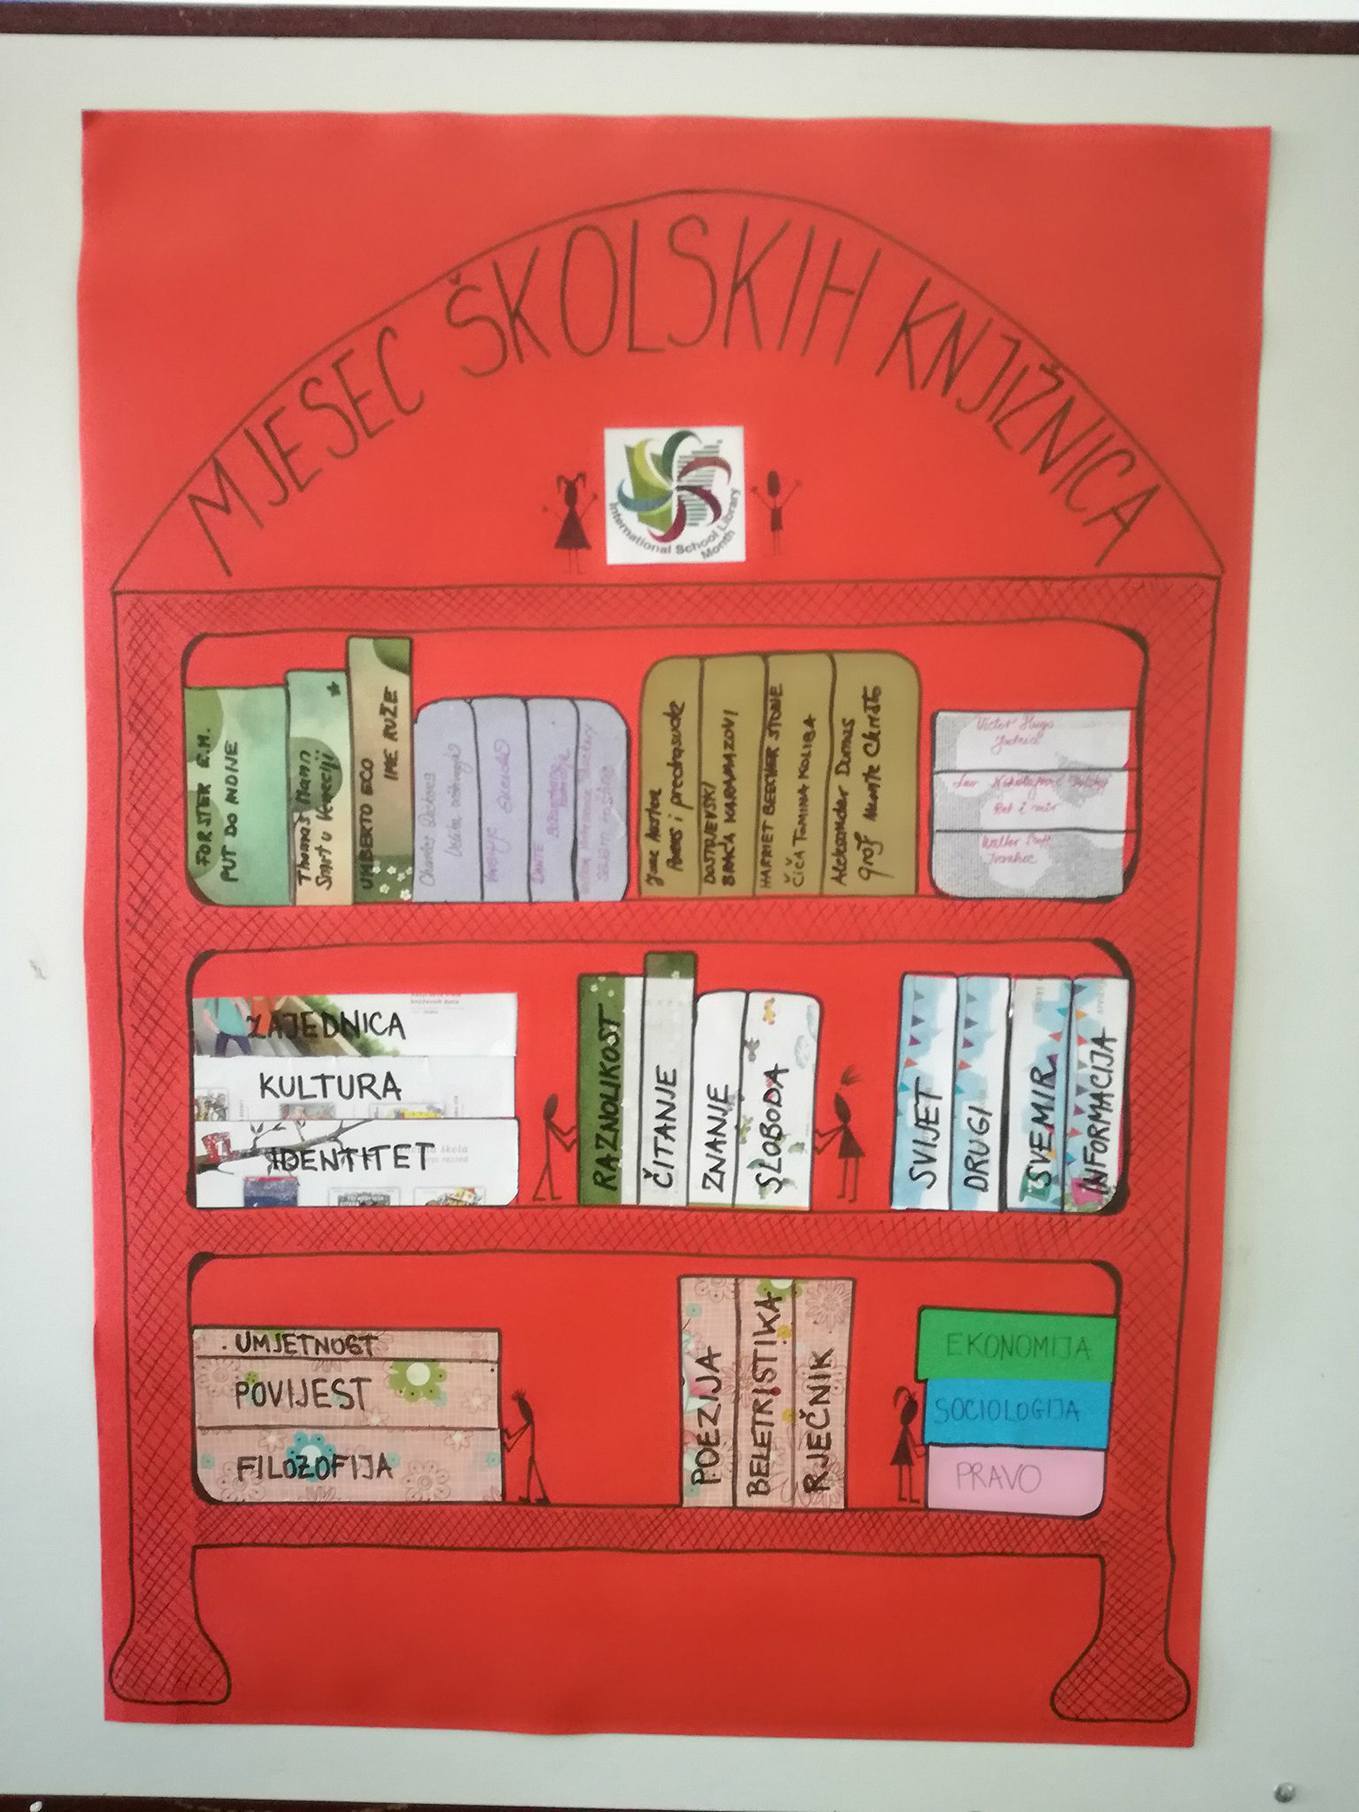 MJESEC ŠKOLSKIH KNJIŽNICA
International School Library
Month
FORSTER E.M.
PUT DO INDIJE
Thomas Mann
Smrt u Veneciji
UMBERTO ECO
IME RUŽE
Charles Dickens
DANTE
Jane Austen
Ponos i predrasude
DOSTOJEVSKI
BRAĆA KARAMAZOVI
HARRIET BEECHER STOWE
ČIČA TOMINA KOLIBA
Aleksandar Dumas
grof Monte Christo
Victor Hugo
Jadnici
Lav Nikolajevič Tolstoj
Rat i mir
Walter Scott
Ivanhoe
ZAJEDNICA
KULTURA
IDENTITET
RAZNOLIKOST
ČITANJE
ZNANJE
SLOBODA
SVIJET
DRUGI
SVEMIR
INFORMACIJA
UMJETNOST
POVIJEST
FILOZOFIJA
POEZIJA
BELETRISTIKA
RJEČNIK
EKONOMIJA
SOCIOLOGIJA
PRAVO